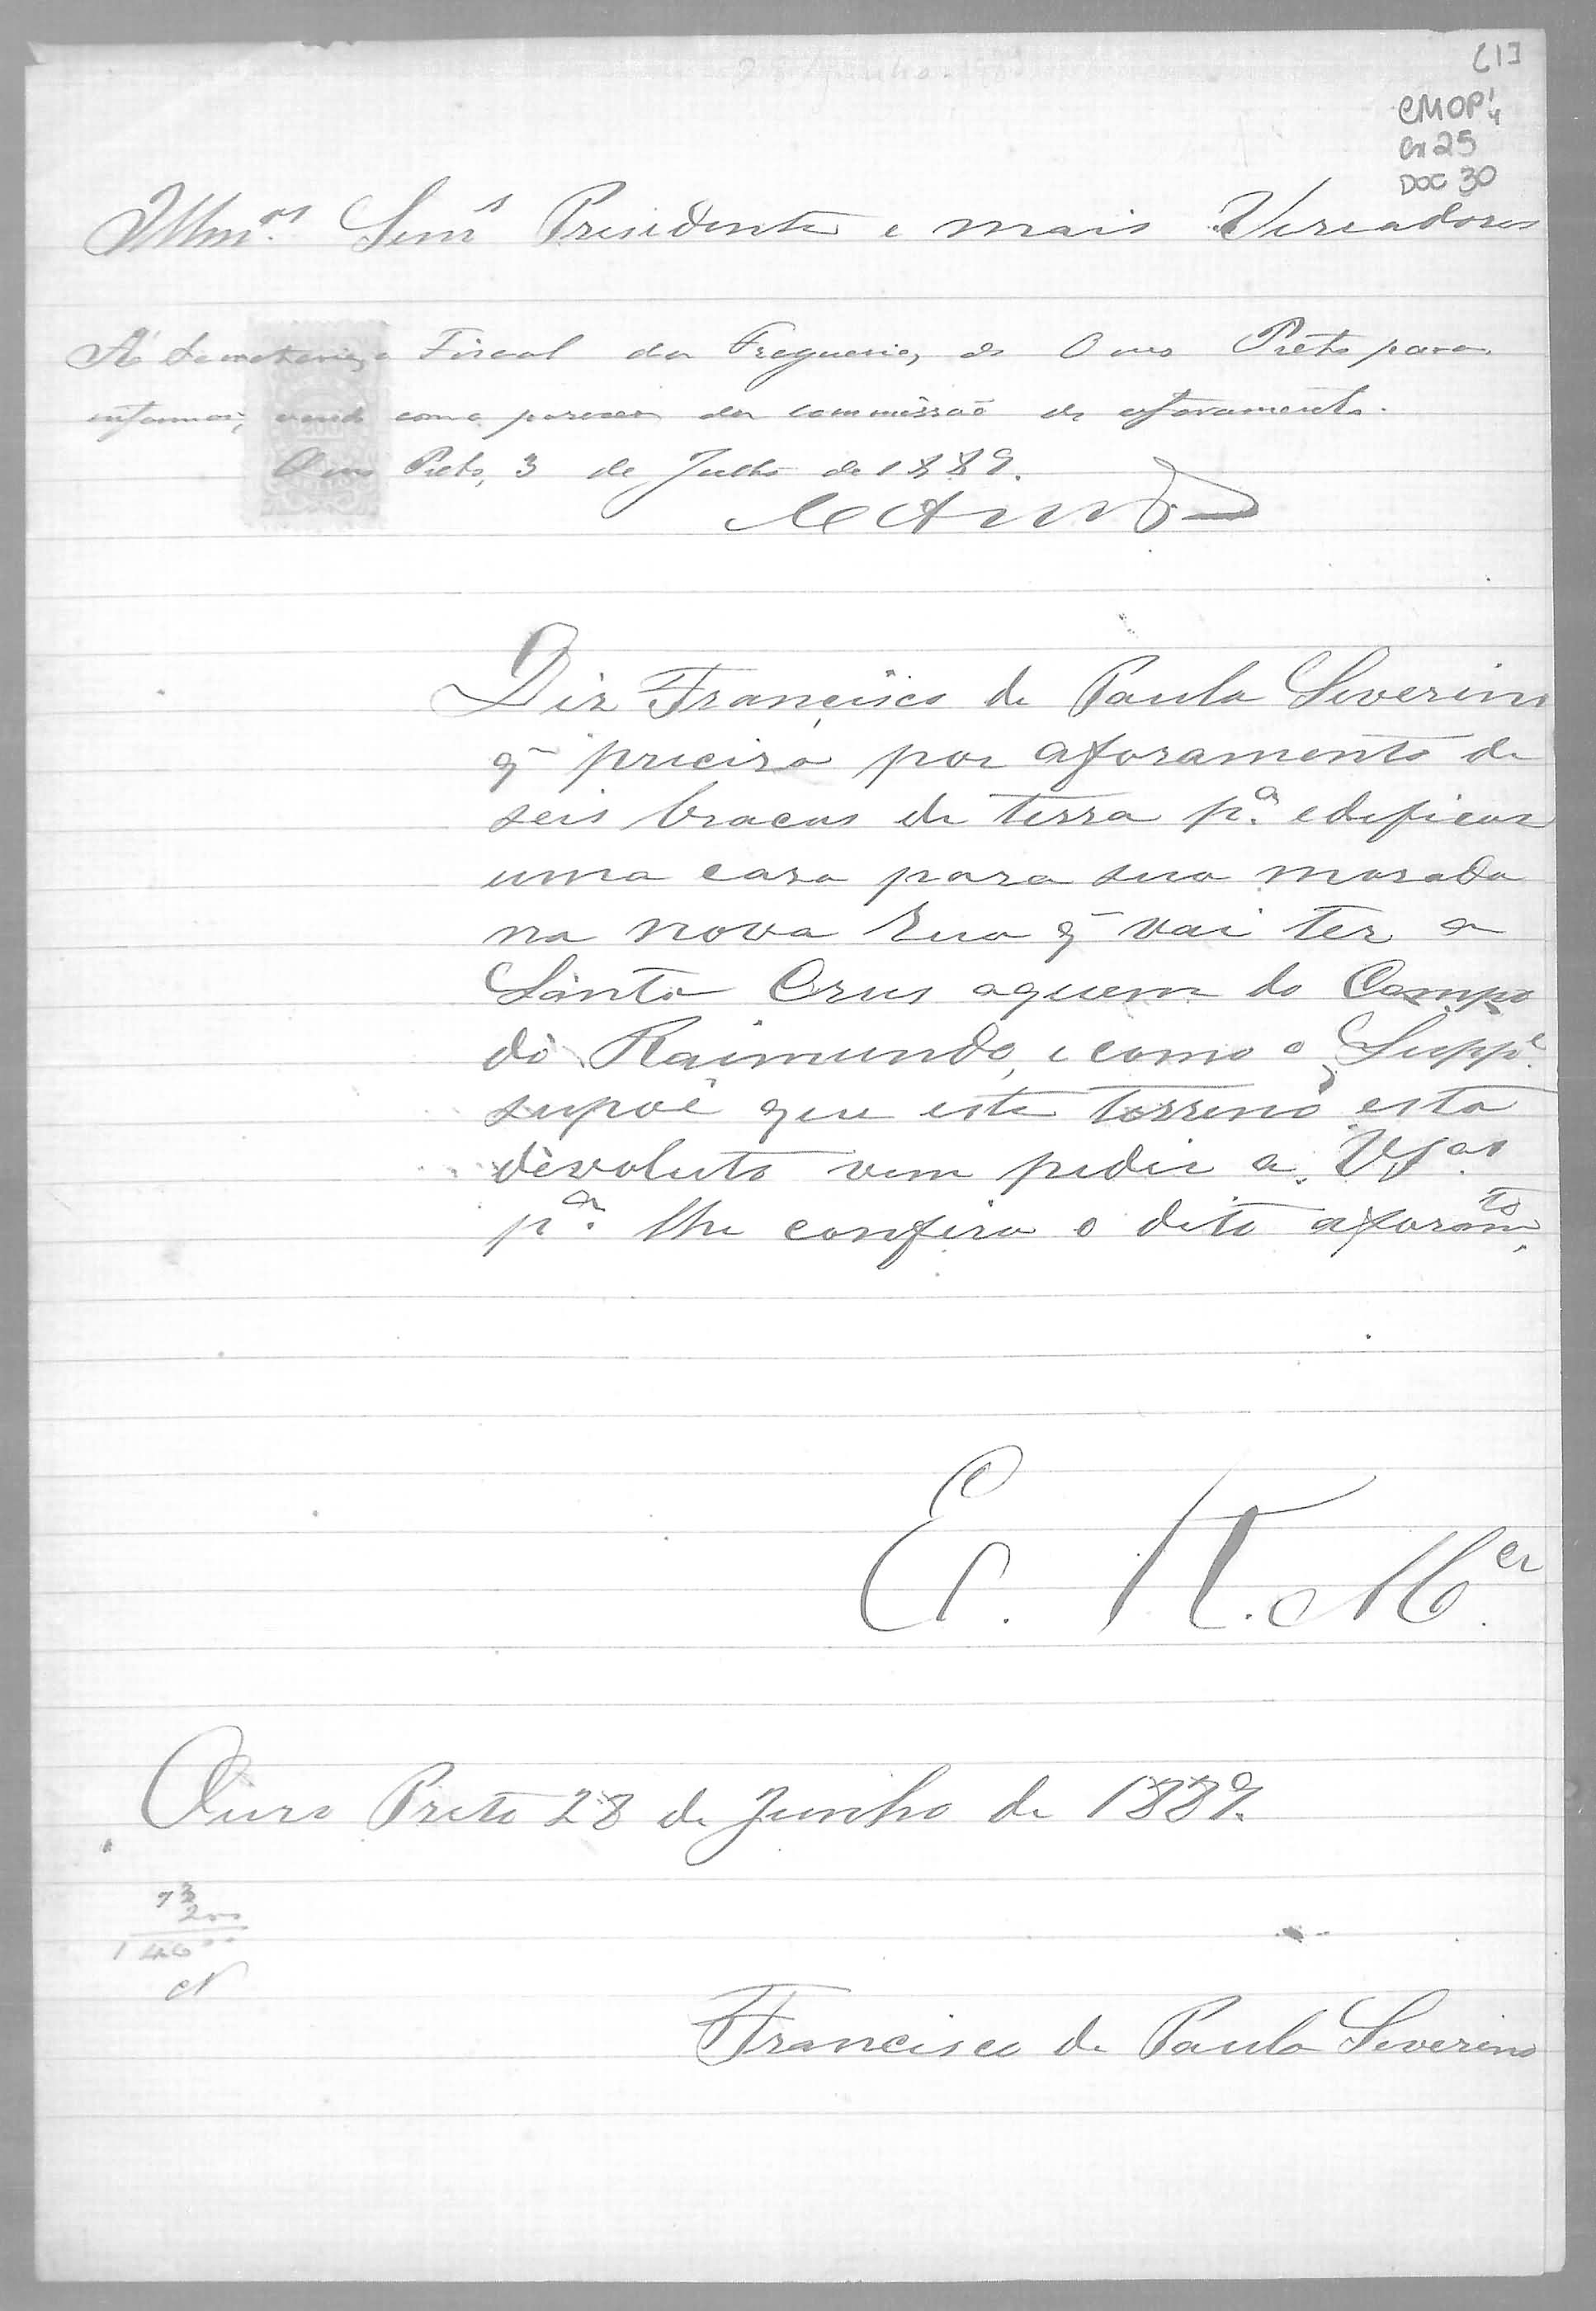 [1]
CMOP
Cx 25
DOC 30
Illmos. Senrs Presidente e mais Vereadores
Á Secretaria, e Fiscal da Freguesia de Ouro Preto para
informar, vindo com o parecer da commissão de aforamento.
Ouro Preto, 3 de Julho de 1889.
Diz Francisco de Paula Severino
q̃ preciza por aforamento de
seis bracas de terra pª. edificar
uma casa para sua morada
na nova Rua q̃ vai ter a
Santa Crus aquem do Campo
do Raimundo, e como o Suppe.
supoê que este terreno esta
devoluto vem pedir a VSas.
pª. lhe confira o dito aforamto.
E. R. Mce.
Ouro Preto 28 de Junho de 1889.
73
200
14600
Francisco de Paula Severino